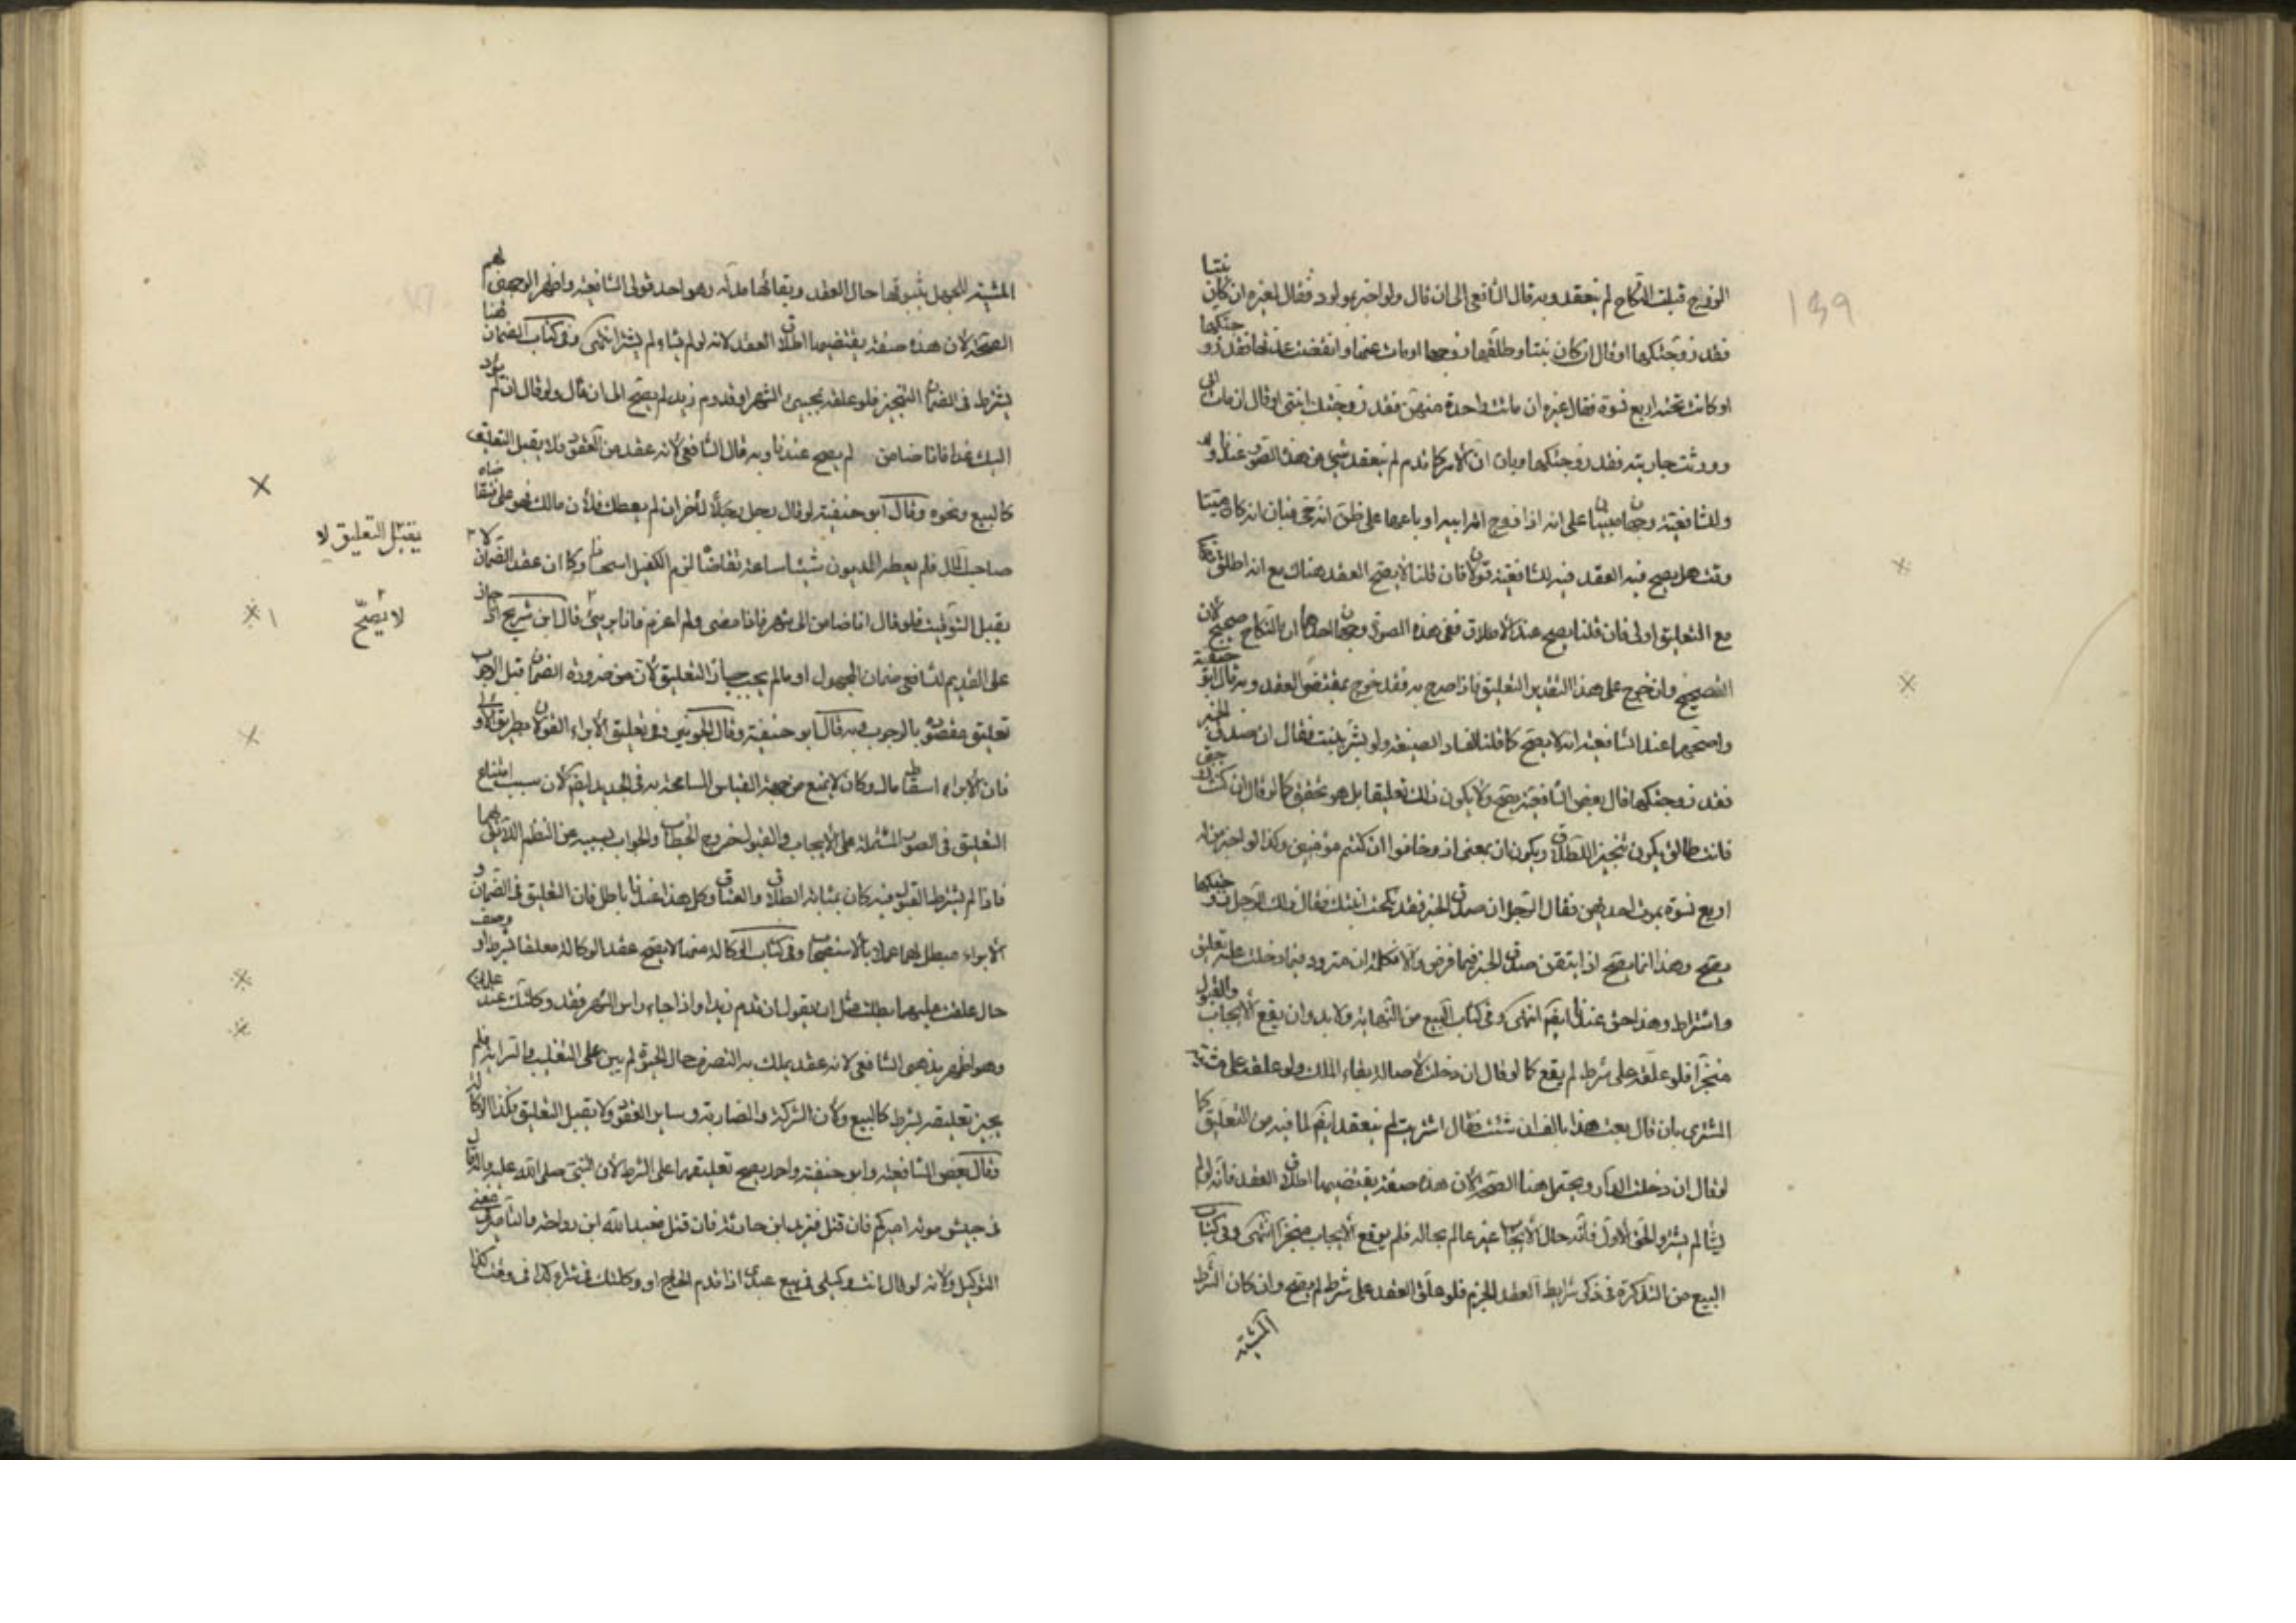 الزوج قبلت النكاح لم ينعقد وبه قال الشافعي الى ان قال ولو اخبر بمولود فقال لغيره ان كان بنتا
فقد زوجتكها او قال ان كان بنتا وطلقها زوجها او مات عنها وانقضت عدتها فقد زوجتكها
او كانت تحته اربع نسوة فقال غيره ان ماتت واحدة منهن فقد زوجتك ابنتي او قال ان مات ابي
وورثت جاريته فقد زوجتكها وبان ان الامر كما قدم لم ينعقد شيء من هذه الصور عندنا و
وللشافعية وجهان مبنيان على انه اذا زوج امة ابيه او باعها على ظن انه حي فبان انه كان ميتا
وقت هل يصح فيه العقد فيه للشافعية قولان فان قلنا لا يصح العقد هناك مع انه اطلق
مع التعليق اولى فان قلنا يصح عند الاطلاق ففي هذه الصورة وجهان احدهما ان النكاح صحيح لان
الصحيح وان خرج على هذا التقدير التعليق فاذا صرح به فقد خرج بمقتضى العقد وبه قال ابو حنيفة
واصحهما عند الشافعية انه لا يصح كما قلنا لفساد الصيغة ولو بشر ببنت فقال ان صدق الخبر
فقد زوجتكها قال بعض الشافعية يصح ولا يكون ذلك تعليقا بل هو تحقيق كما لو قال ان كنت زوجتي
فانت طالق يكون تنجيزا للطلاق ويكون ان بمعنى اذ وخافون ان كنتم مؤمنين وكذا لو اخبر من له
اربع نسوة بموت احديهن فقال الرجل ان صدق الخبر فقد نكحت ابنتك فقال ذلك الرجل زوجتكها
يصح وهذا انما يصح اذا تيقن صدق الخبر فيما فرض والا فكلمة ان متردد فيما دخلت عليه تعليق
واشتراط وهذا حق عندنا ايضا انتهى وفي كتاب البيع من النهاية ولا بد وان يقع الايجاب والقبول
منجزا فلو علقه على شرط لم يقع كما لو قال ان دخلت لاصالة بقاء الملك ولو علقه على مشية
المشتري بان قال بعتك هذا بالف ان شئت فقال اشتريت لم ينعقد ايضا لما فيه من التعليق كما
لو قال ان دخلت الدار ويحتمل هنا الصحة لان هذه صفة يقتضيها اطلاق العقد فانه لو لم
يشا لم يشتر والحق الاول فانه حال الايجاب غير عالم بحاله فلم يوقع الايجاب منجزا انتهى وفي كتاب
البيع من التذكرة في ذكر شرايط العقد الجزم فلو علق العقد على شرط لم يصح وان كان الشرط
المشية
المشية للجهل بثبوتها حال العقد وبقائها مدته وهو احد قولي الشافعية واظهر الوجهين لهم
الصحة لان هذه صفة يقتضيها اطلاق العقد لانه لو لم يشاء لم يشتر انتهى وفي كتاب الضمان
يشترط في الضمان التنجيز فلو علقه بمجيىء الشهر او قدوم زيد لم يصح الى ان قال ولو قال ان لم يؤد
اليك غدا فانا ضامن لم يصح عندنا وبه قال الشافعي لانه عقد من العقود فلا يقبل التعليق
كالبيع ونحوه وقال ابو حنيفة لو قال رجل لاخر ان لم يعطك فلان مالك فهو علي
صاحب المال فلم يعطه المديون شيئا ساعة تقاضاه لزم الكفيل استحسانا وكما ان عقد الضمان لا
يقبل التعليق لا
يقبل التوقيت فلو قال انا ضامن الى شهر فاذا مضى ولم اغرم فانا برىء قال ابن شريح اذا جاز
لا يصح
على القديم للشافعي ضمان المجهول او ما لم يجب جاز التعليق لان من ضرورة الضمان قبل الوجوب
تعليق مقصوده بالوجوب وبه قال ابو حنيفة وقال الجويني وفي تعليق الابراء القولان بطريق الاولى
فان الابراء اسقاط مال وكان لا يمنع من جهة القياس المسامحة به في الجديد ايضا لان سبب امتناع
التعليق في الصور المشتملة على الايجاب والقبول خروج الخطاب والجواب بسببه عن النظم اللايق بهما
فاذا لم يشترط القبول فيه كان بمثابة الطلاق والعتاق وكل هذا عندنا باطل فان التعليق في الضمان و
الابراء مبطل لهما عملا بالاستصحاب وفي كتاب الوكالة منها لا يصح عقد الوكالة معلقا بشرط او وصف
حال علقت عليهما بطلت مثل ان يقول ان قدم زيد او اذا جاء راس الشهر فقد وكلتك عند علمائنا
وهو اظهر مذهبي الشافعي لانه عقد يملك به التصرف حال الحيوة لم يبن على التغليب والسراية فلم
يجز تعليقه بشرط كالبيع ولان الشركة والمضاربة وساير العقود لا تقبل التعليق فكذا الوكالة
وقال بعض الشافعية وابو حنيفة واحمد يصح تعليقها على الشرط لان النبي صلى الله عليه واله قال
في جيش موته اميركم فان قتل فزيد ابن حارثة فان قتل فعبد الله ابن رواحة والتامير في معنى
التوكيل ولانه لو قال انت وكيلي في بيع عبدي اذا قدم الحاج او وكلتك في شراء كذا في وقت كذا